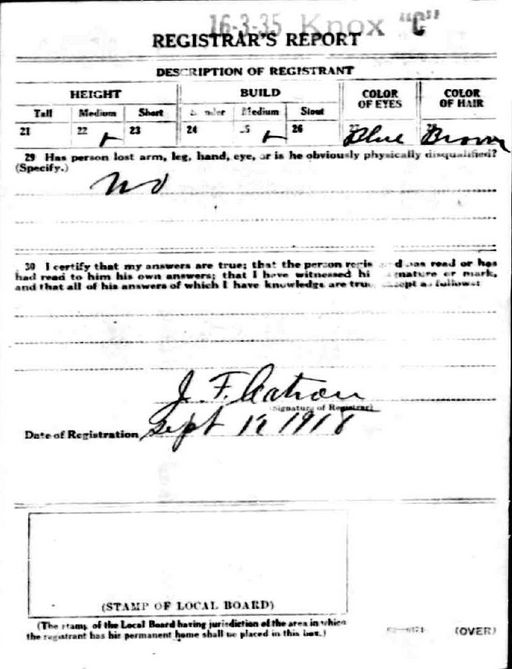 16-3-35 Knox "C"
REGISTRAR'S REPORT
DESCRIPTION OF REGISTRANT
HEIGHT BUILD COLOR OF EYES COLOR OF HAIR
Tall Medium Short Medium Stout
21 22 23 24 26 Blue Brown
29 Has person lost arm, leg, hand, eye, or is he obviously physically disqualified?
(Specify.)
No
30 I certify that my answers are true; that the person has read or has
had read to him his own answers; that I have witnessed his signature or mark,
and that all of his answers of which I have knowledge are true, except as follows:
J. F. Catron
(Signature of Registrar)
Date of Registration Sept 12 1918
(STAMP OF LOCAL BOARD)
(The stamp of the Local Board having jurisdiction of the area in which
the registrant has his permanent home shall be placed in this box.)
(OVER)